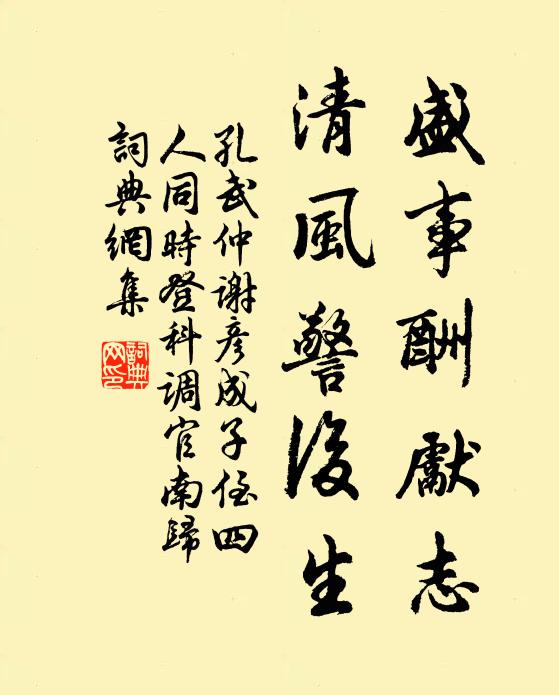 盛事酬獻志
清風警後生
孔武仲謝彥成子侄四
人同時登科調官南歸
詞典網集
詞典網印